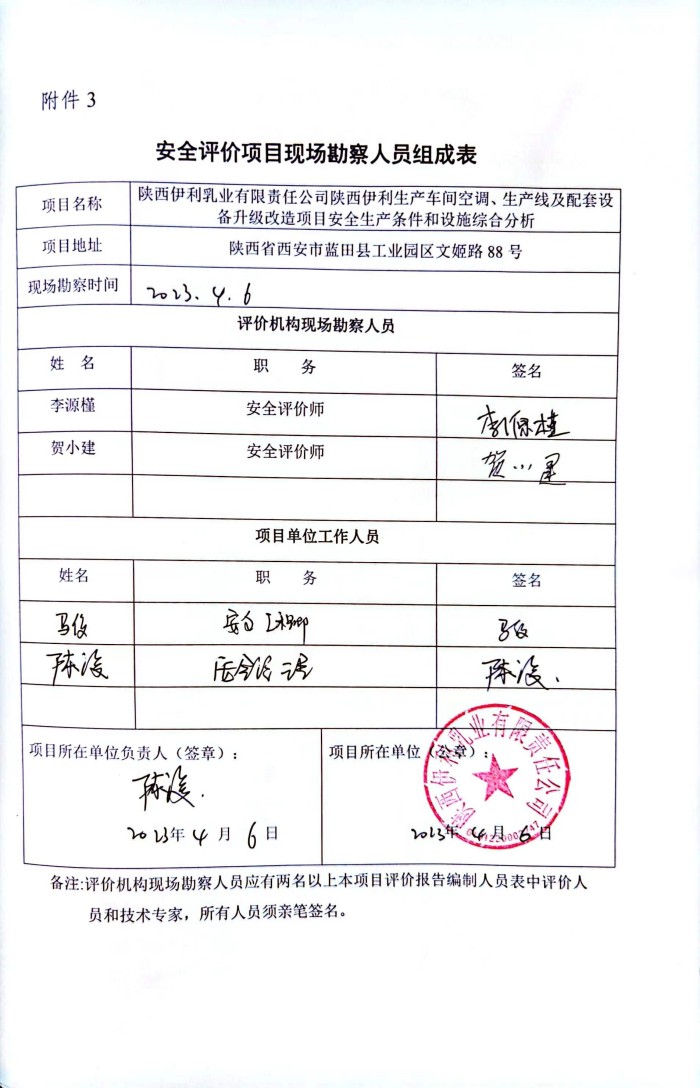 附件 3
安全评价项目现场勘察人员组成表
项目名称
陕西伊利乳业有限责任公司陕西伊利生产车间空调、生产线及配套设
备升级改造项目安全生产条件和设施综合分析
项目地址
陕西省西安市蓝田县工业园区文姬路 88 号
现场勘察时间
2023.4.6
评价机构现场勘察人员
姓 名 职 务 签名
李源槿 安全评价师
贺小建 安全评价师 贺小建
项目单位工作人员
姓名 职 务 签名
马俊 安全工程师 马俊
陈浚 陈浚.
项目所在单位负责人（签章）：
陈浚.
2023年 4 月 6 日
项目所在单位（签章）：
陕西伊利乳业有限责任公司
2023年 4 月 6 日
备注:评价机构现场勘察人员应有两名以上本项目评价报告编制人员表中评价人
员和技术专家，所有人员须亲笔签名。